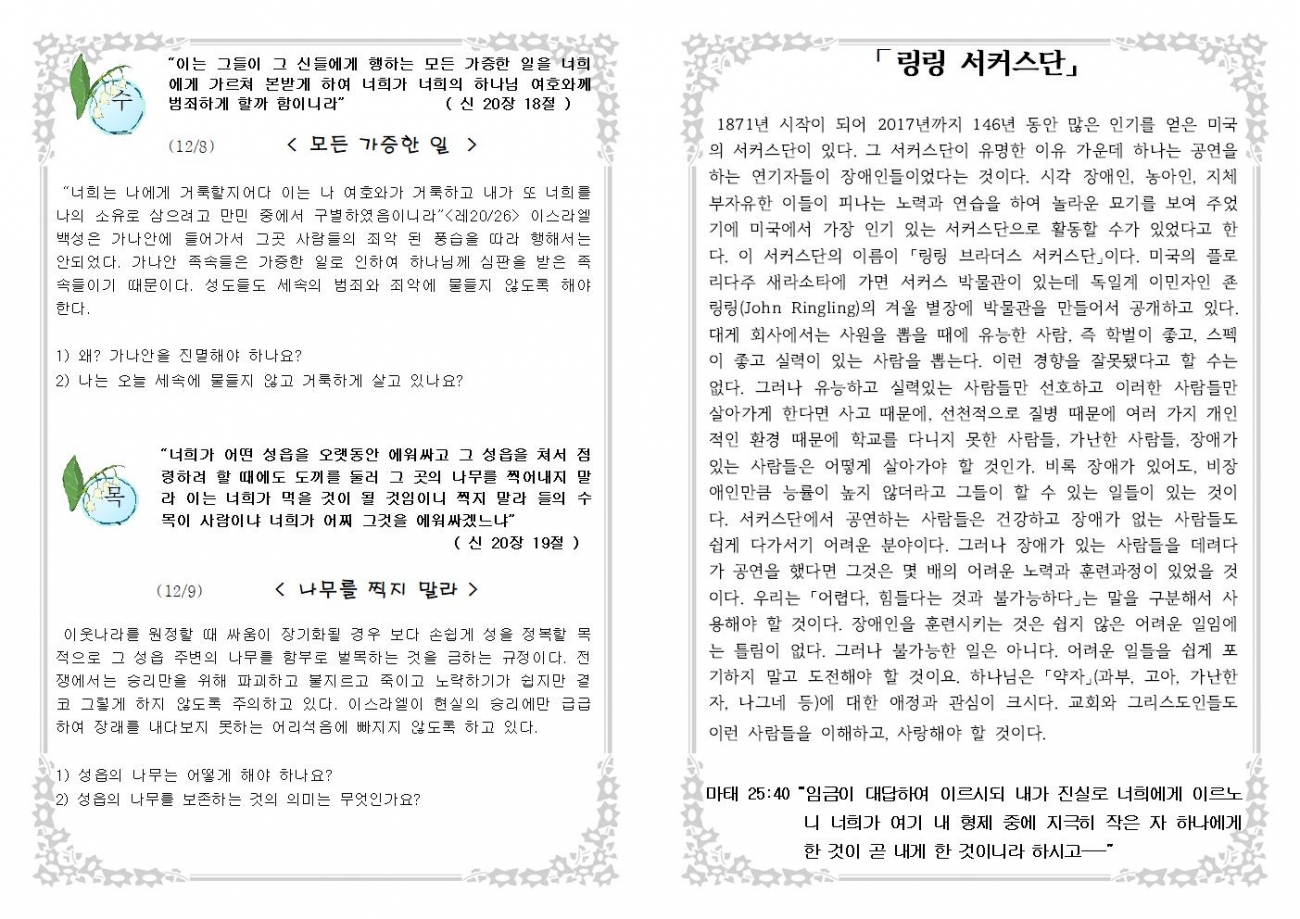 "이는 그들이 그 신들에게 행하는 모든 가증한 일을 너희
에게 가르쳐 본받게 하여 너희가 너희의 하나님 여호와께
범죄하게 할까 함이니라" ( 신 20장 18절 )
수
(12/8) < 모든 가증한 일 >
"너희는 나에게 거룩할지어다 이는 나 여호와가 거룩하고 내가 또 너희를
나의 소유로 삼으려고 만민 중에서 구별하였음이니라"<레20/26> 이스라엘
백성은 가나안에 들어가서 그곳 사람들의 죄악 된 풍습을 따라 행해서는
안되었다. 가나안 족속들은 가증한 일로 인하여 하나님께 심판을 받은 족
속들이기 때문이다. 성도들도 세속의 범죄와 죄악에 물들지 않도록 해야
한다.
1) 왜? 가나안을 진멸해야 하나요?
2) 나는 오늘 세속에 물들지 않고 거룩하게 살고 있나요?
"너희가 어떤 성읍을 오랫동안 에워싸고 그 성읍을 쳐서 점
령하려 할 때에도 도끼를 둘러 그 곳의 나무를 찍어내지 말
라 이는 너희가 먹을 것이 될 것임이니 찍지 말라 들의 수
목이 사람이냐 너희가 어찌 그것을 에워싸겠느냐"
( 신 20장 19절 )
목
(12/9) < 나무를 찍지 말라 >
이웃나라를 원정할 때 싸움이 장기화될 경우 보다 손쉽게 성을 정복할 목
적으로 그 성읍 주변의 나무를 함부로 벌목하는 것을 금하는 규정이다. 전
쟁에서는 승리만을 위해 파괴하고 불지르고 죽이고 노략하기가 쉽지만 결
코 그렇게 하지 않도록 주의하고 있다. 이스라엘이 현실의 승리에만 급급
하여 장래를 내다보지 못하는 어리석음에 빠지지 않도록 하고 있다.
1) 성읍의 나무는 어떻게 해야 하나요?
2) 성읍의 나무를 보존하는 것의 의미는 무엇인가요?
「링링 서커스단」
1871년 시작이 되어 2017년까지 146년 동안 많은 인기를 얻은 미국
의 서커스단이 있다. 그 서커스단이 유명한 이유 가운데 하나는 공연을
하는 연기자들이 장애인들이었다는 것이다. 시각 장애인, 농아인, 지체
부자유한 이들이 피나는 노력과 연습을 하여 놀라운 묘기를 보여 주었
기에 미국에서 가장 인기 있는 서커스단으로 활동할 수가 있었다고 한
다. 이 서커스단의 이름이 「링링 브라더스 서커스단」이다. 미국의 플로
리다주 새라소타에 가면 서커스 박물관이 있는데 독일계 이민자인 존
링링(John Ringling)의 겨울 별장에 박물관을 만들어서 공개하고 있다.
대게 회사에서는 사원을 뽑을 때에 유능한 사람, 즉 학벌이 좋고, 스펙
이 좋고 실력이 있는 사람을 뽑는다. 이런 경향을 잘못됐다고 할 수는
없다. 그러나 유능하고 실력있는 사람들만 선호하고 이러한 사람들만
살아가게 한다면 사고 때문에, 선천적으로 질병 때문에 여러 가지 개인
적인 환경 때문에 학교를 다니지 못한 사람들, 가난한 사람들, 장애가
있는 사람들은 어떻게 살아가야 할 것인가. 비록 장애가 있어도, 비장
애인만큼 능률이 높지 않더라고 그들이 할 수 있는 일들이 있는 것이
다. 서커스단에서 공연하는 사람들은 건강하고 장애가 없는 사람들도
쉽게 다가서기 어려운 분야이다. 그러나 장애가 있는 사람들을 데려다
가 공연을 했다면 그것은 몇 배의 어려운 노력과 훈련과정이 있었을 것
이다. 우리는 「어렵다, 힘들다는 것과 불가능하다」는 말을 구분해서 사
용해야 할 것이다. 장애인을 훈련시키는 것은 쉽지 않은 어려운 일임에
는 틀림이 없다. 그러나 불가능한 일은 아니다. 어려운 일들을 쉽게 포
기하지 말고 도전해야 할 것이요. 하나님은 「약자」(과부, 고아, 가난한
자, 나그네 등)에 대한 애정과 관심이 크시다. 교회와 그리스도인들도
이런 사람들을 이해하고, 사랑해야 할 것이다.
마태 25:40 "임금이 대답하여 이르시되 내가 진실로 너희에게 이르노
니 너희가 여기 내 형제 중에 지극히 작은 자 하나에게
한 것이 곧 내게 한 것이니라 하시고──"